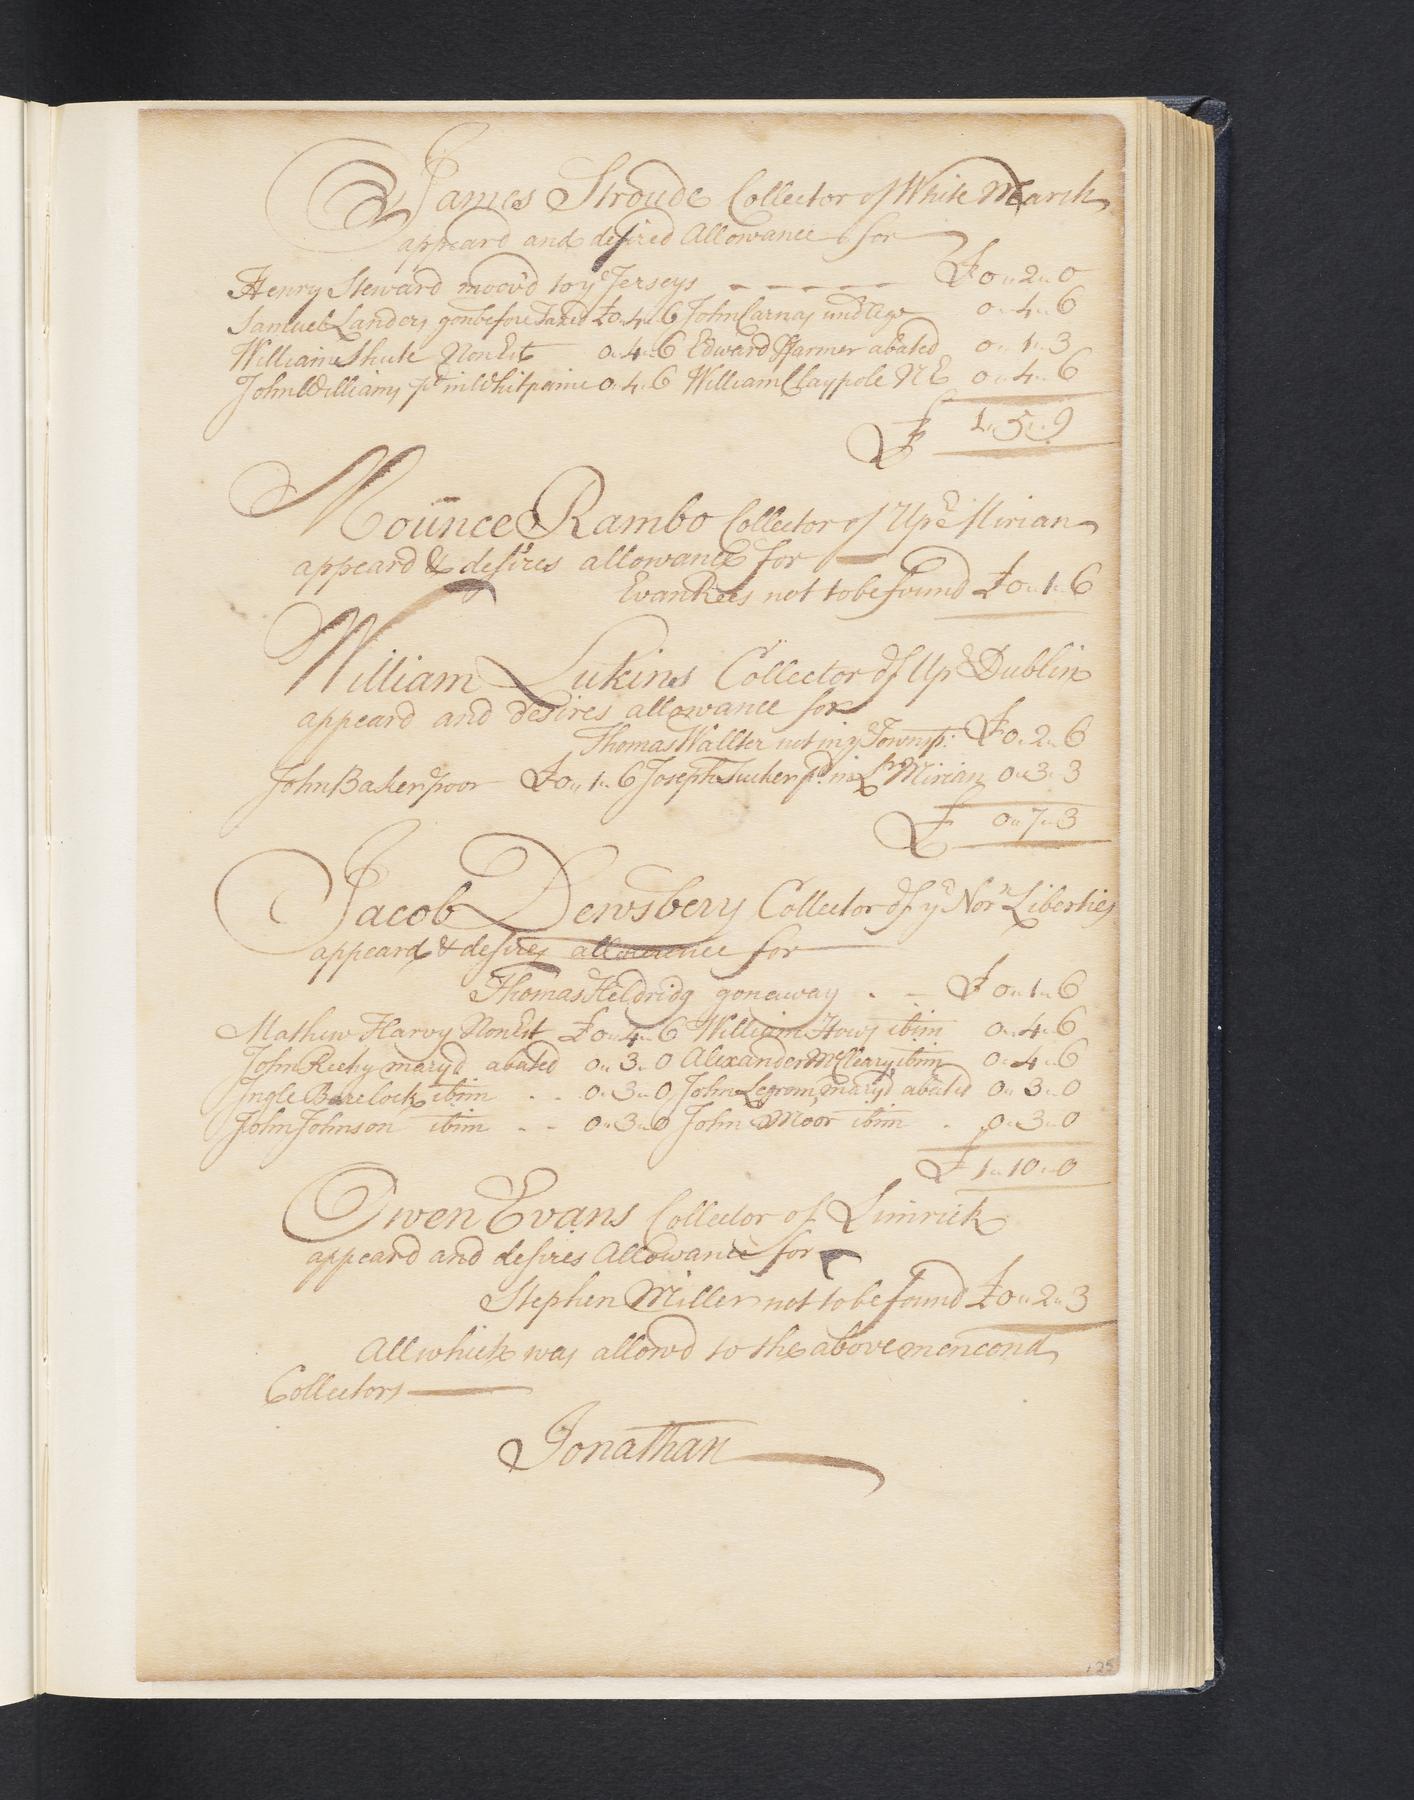 James Stroude Collector of White Marsh
appeard and desired Allowance for
Henry Steward moov'd to ye Jerseys - - - - - - £ 0 " 2 " 0
Samuel Landers gon before Taxed £0 " 4 " 6 John Carnay und'age 0 " 4 " 6
William Shute Non Est 0 " 4 " 6 Edward Farmer abated 0 " 1 " 3
John Williams pd in Whitpaine 0 " 4 " 6 William Claypole N E 0 " 4 " 6
£ 1 " 5 " 9
Mounce Rambo Collector of Upr Mirian
appeard & desires allowance for
Evan Rees not to be found £ 0 " 1 " 6
William Lukins Collector of Upr Dublin
appeard and desires allowance for
Thomas Wallter not in ye Townsp: £ 0 " 2 " 6
John Baker poor £ 0 " 1 " 6 Joseph Tucker pd in Lr Mirian 0 " 3 " 3
£ 0 " 7 " 3
Jacob Dewsbery Collector of ye Norn Liberties
appeard & desires allowance for
Thomas Heldridg gone away . - £ 0 " 1 " 6
Mathew Harvy Non Est £ 0 " 4 " 6 William Hows ibim 0 " 4 " 6
John Richy maryd abated 0 " 3 " 0 Alexander McCleary ibim 0 " 4 " 6
Ingle Barelock ibim . . 0 " 3 " 0 John Legrom maryd abated 0 " 3 " 0
John Johnson ibim . . 0 " 3 " 0 John Moor ibim . 0 " 3 " 0
£ 1 " 10 " 0
Owen Evans Collector of Limrick
appeard and desires Allowance for
Stephen Miller not to be found £ 0 " 2 " 3
All which was allow'd to the above mencond
Collectors
Jonathan
125